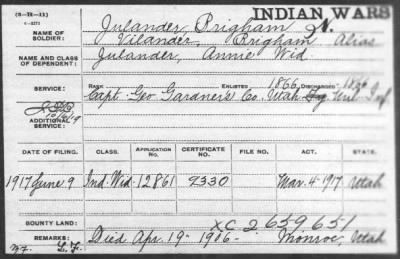 (3—H—11)
6—2273
INDIAN WARS
NAME OF SOLDIER: Julander, Brigham N.
Vilander, Brigham Alias
NAME AND CLASS OF DEPENDENT: Julander, Annie Wid.
SERVICE: RANK ENLISTED 1866 DISCHARGED 1866
Capt. Geo Gardner's Co. Utah Mil. Inf.
ADDITIONAL SERVICE:
DATE OF FILING. CLASS. APPLICATION NO. CERTIFICATE NO. FILE NO. ACT. STATE.
1917 June 9 Ind. Wid. 12861 9330 Mar. 4-1917 Utah
BOUNTY LAND: XC 2 659 651
REMARKS: Died Apr. 19-1906- Monroe, Utah